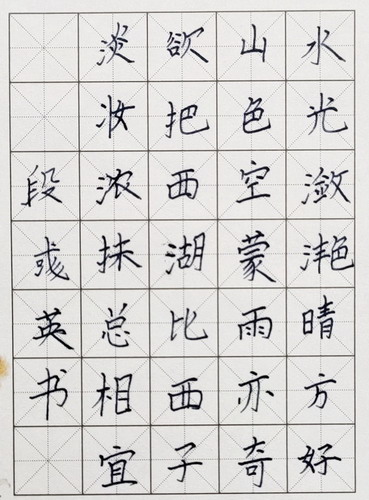 水光潋滟晴方好
山色空蒙雨亦奇
欲把西湖比西子
淡妆浓抹总相宜
段彧英书